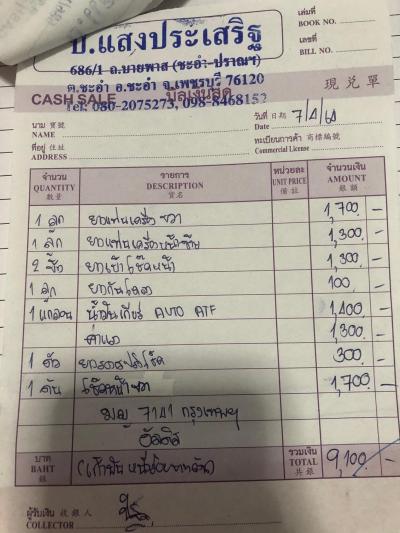 บ.แสงประเสริฐ
เล่มที่
BOOK NO.
เลขที่
BILL NO.
686/1 ถ.บายพาส (ชะอำ-ปราณฯ)
ต.ชะอำ อ.ชะอำ จ.เพชรบุรี 76120
CASH SALE บิลเงินสด 現兌單
Tel: 086-2075273, 098-8468152
นาม 寶號
NAME
วันที่ 日期 7/4/64
Date
ที่อยู่ 住址
ADDRESS
ทะเบียนการค้า 商標編號
Commercial License
จำนวน รายการ หน่วยละ จำนวนเงิน
QUANTITY DESCRIPTION UNIT PRICE AMOUNT
數量 貨名 備註 銀額
1 ลูก ยางแท่นเครื่อง ขวา 1,700. –
1 ลูก ยางแท่นเครื่องหน้าซ้าย 1,300. –
2 ยางเบ้าโช๊คหน้า 1,300. –
1 ลูก ยางกันโคลง 100. –
1 แกลอน น้ำมันเกียร์ AUTO ATF 1,400. –
ค่าแรง 1,300. –
1 ตัว 300. –
1 ต้น โช๊คหน้า ขวา 1,700. –
7141 กรุงเทพฯ
อัลติส
บาท
BAHT
銀
(เก้าพันหนึ่งร้อยบาทถ้วน)
รวมเงิน
TOTAL
共銀
9,100. –
ผู้รับเงิน 收銀人
COLLECTOR